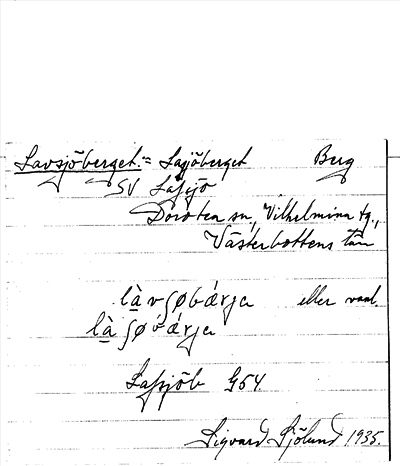 Lavsjöberget = Lasjöberget Berg
SV Lafsjö
Dorotea sn, Vilhelmina tg.,
Västerbottens län
là v ʃøbǽrja eller vanl.
là ʃø bǽrja
Lafsjöb G54
Sigvard Sjölund 1935.